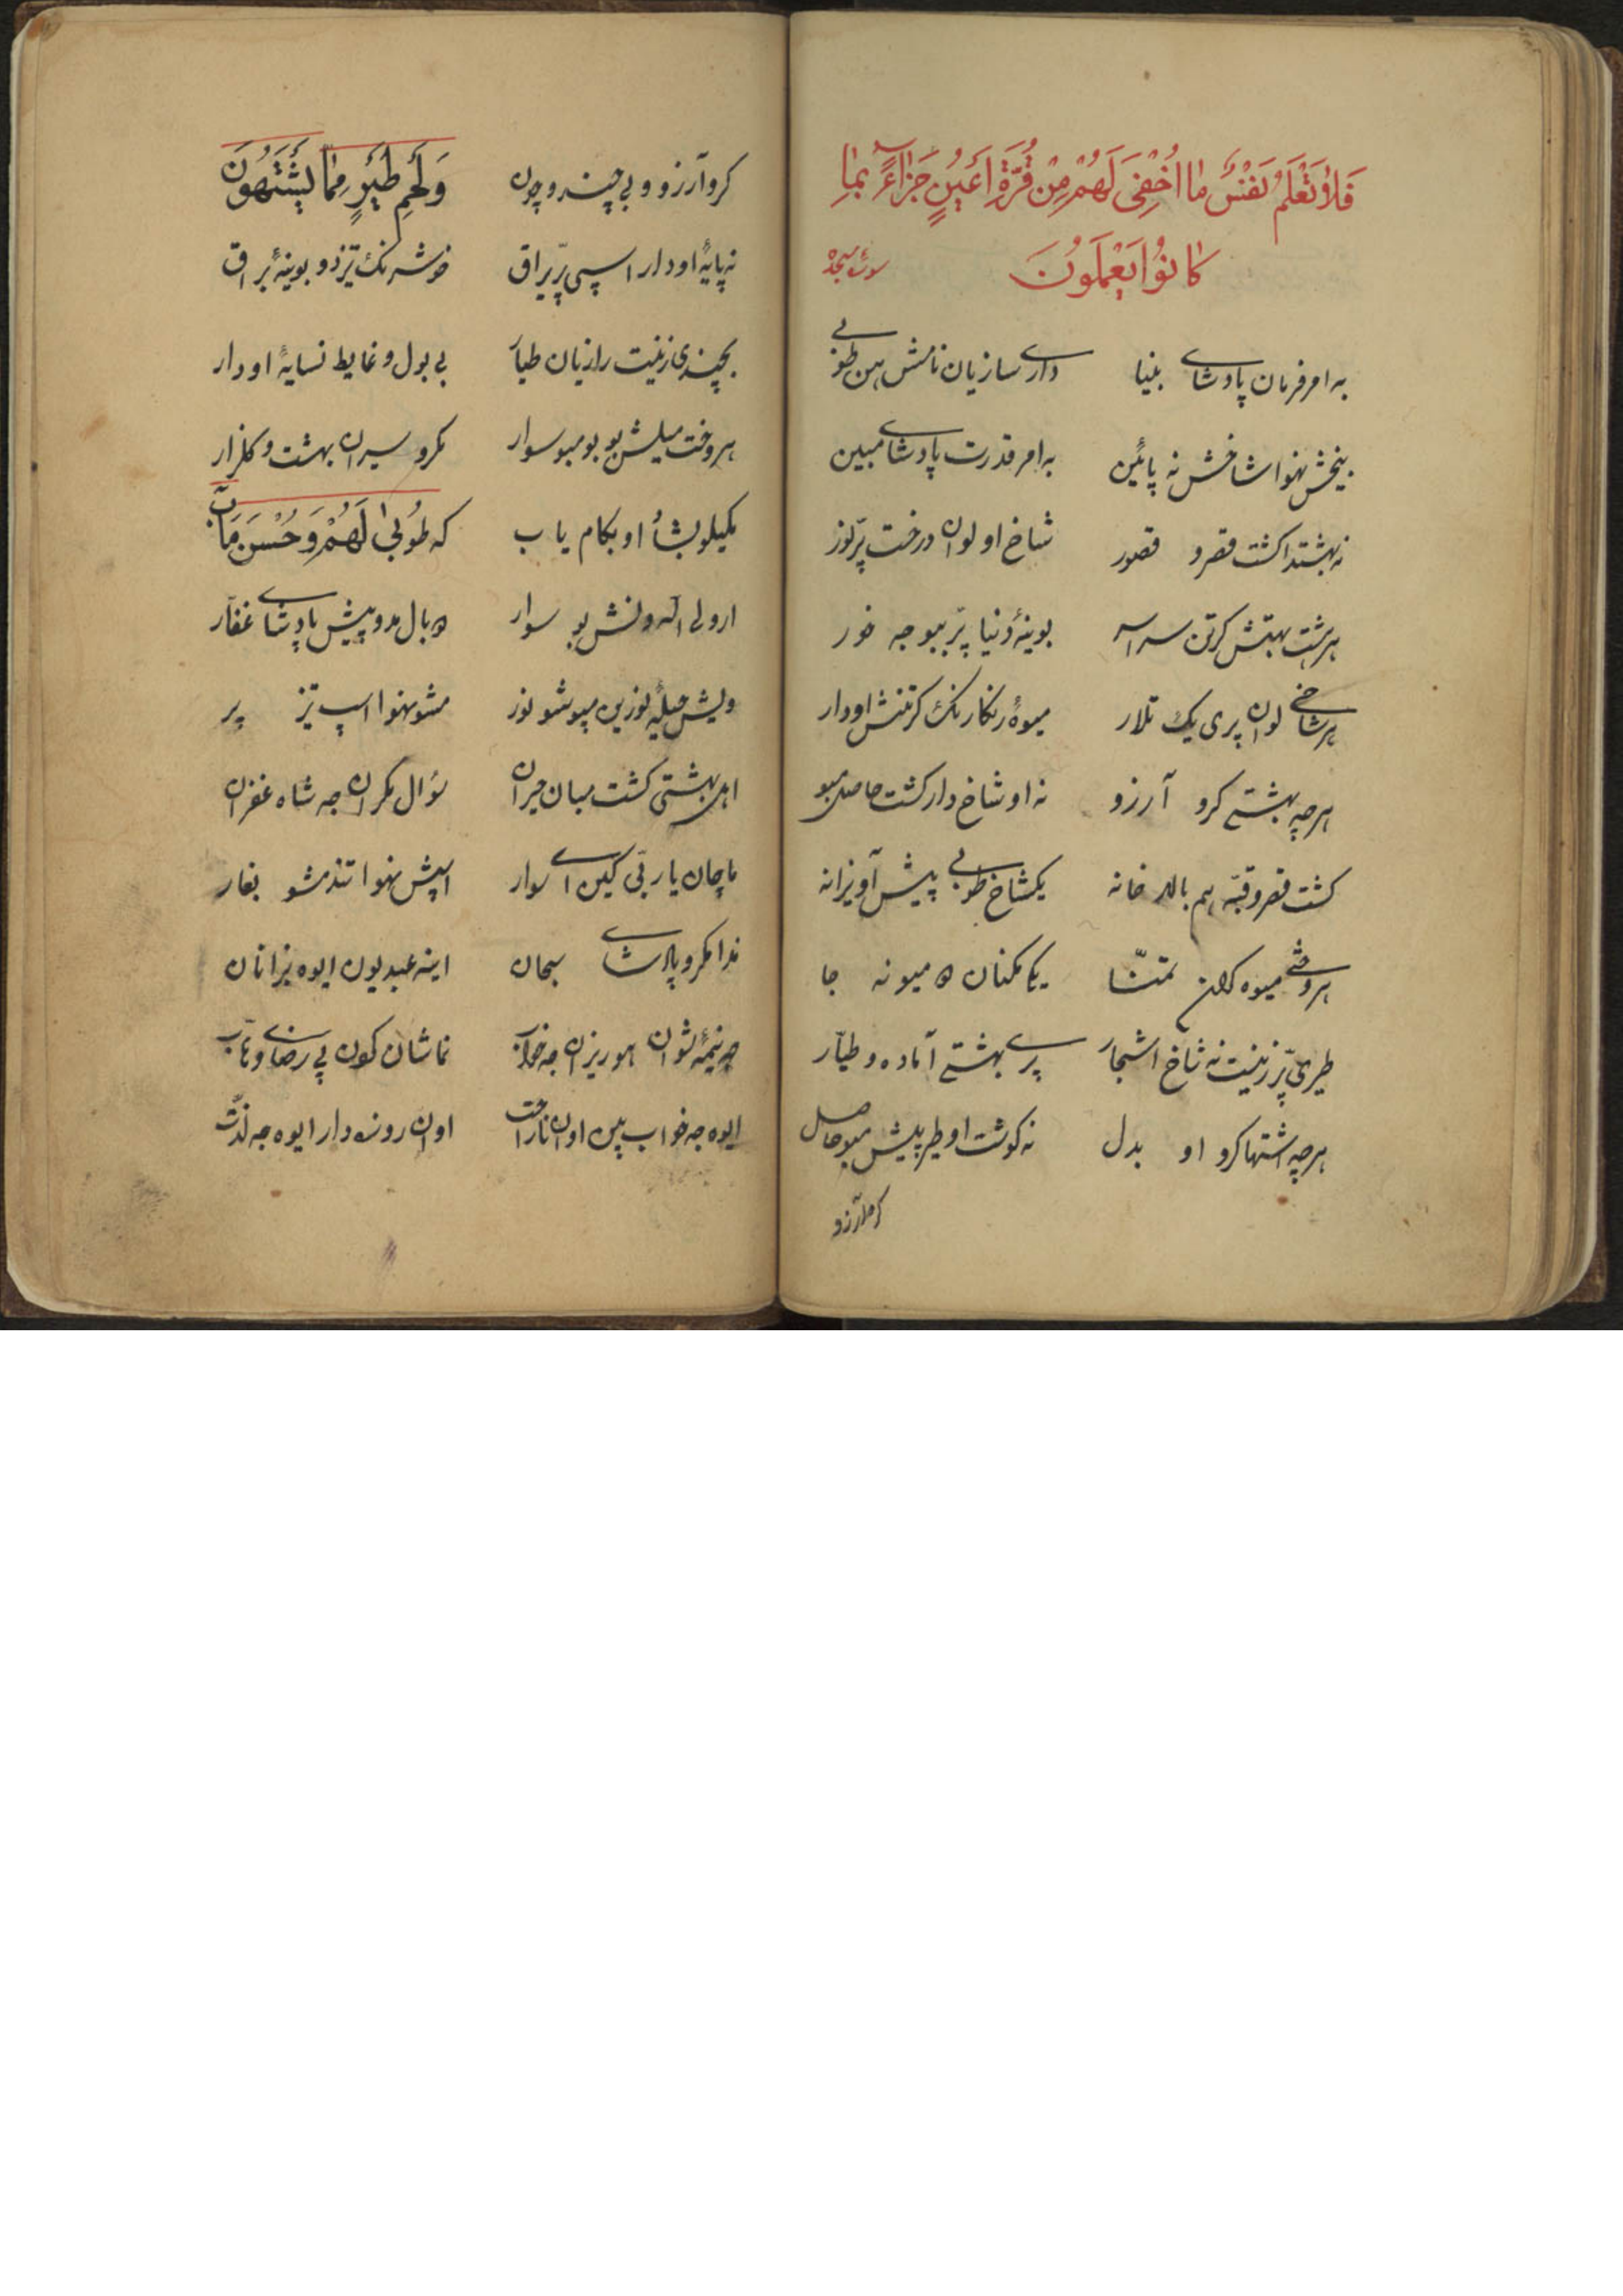 فَلٰا تَعْلَمُ نَفْسٌ مٰا اُخْفِیَ لَهُمْ مِنْ قُرَّةِ اَعْیُنٍ جَزٰآءً بِمٰا
کٰانُوْا یَعْمَلُوْنَ سورۀ سجده
به امر فرمان پادشای بنیا دارے سازیان نامش هن طوبی
بیخش نهوا شاخش نه پائین به امر قدرت پادشای مبین
نه بهشتدا کشت قصر و قصور شاخ او لوان درخت پرّ نور
هر هشت بهتش کرتن سراسر بوینۀ دنیا پرّ ببو جه خور
هر شاخے لوان پری یک تلار میوۀ رنکارنک کرتنش او دار
هر چه بهشتے کرو آرزو نه او شاخ دار کشت حاصل مبو
کشت قصر و قبّه هم بالاخانه یکشاخ طوبی پیش آویزانه
هر وختے میوه تمنّا یکمکنان میو نه جا
طیری پرّ زینت نه شاخ اشجار پرے بهشتے آماده و طیّار
هر چه اشتها کرو او بدل نه کوشت او طیر پیش مبو حاصل
کرو آرزو
کرو آرزو و بی چند و چون وَلَحْمِ طَیْرٍ مِمّٰا یَشْتَهُوْنَ
نه پایۀ او دار اسپی پرّ یراق خوشرنک تیزدو بوینۀ براق
بچندی زینت رازیان طیار بی بول و غایط نسایۀ او دار
هر وخت میلش بو بو مبو سوار مکرو سیران بهشت و کلزار
او بکام یاب که طُوبیٰ لَهُمْ وَحُسْنَ مَآبٍ
ار ولی بو سوار بال مدو پیش پادشای غفّار
ویش حیلۀ نورین مپوشو نور مشو نهوا اسپ تیز پر
اهل بهشتی کشت مبان حیران سؤال مکران جه شاه غفران
ماچان یا ربّی کین اے سوار اسپش نهوا تند مشو بغار
ندا مکرو پادشای سبحان اینه عبدیون ایوه بزانان
چه نیمۀ شوان هوریزان جه خواب نماشان کون پی رضای وهّاب
ایوه جه خواب بین اوان ناراحت اوان روزه دار ایوه جه لذّت